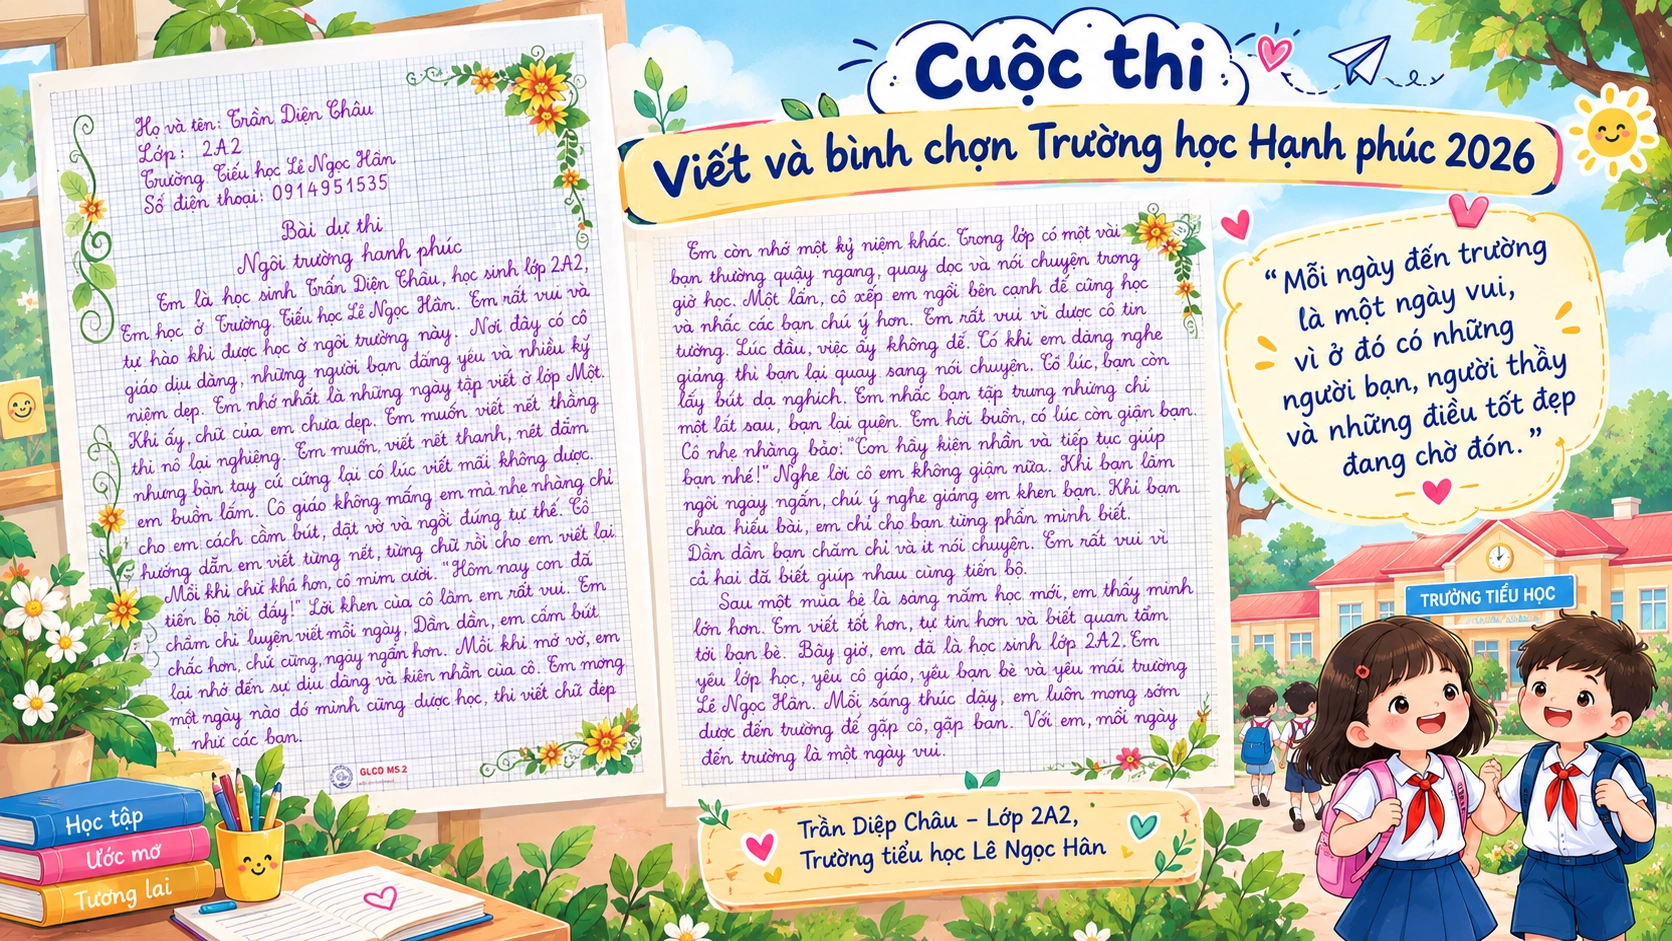 Cuộc thi
Viết và bình chọn Trường học Hạnh phúc 2026
Họ và tên: Trần Diện Châu
Lớp: 2A2
Trường Tiểu học Lê Ngọc Hân
Số điện thoại: 0914951535
Bài dự thi
Ngôi trường hạnh phúc
Em là học sinh Trần Diện Châu, học sinh lớp 2A2,
Em học ở Trường Tiểu học Lê Ngọc Hân. Em rất vui và
tự hào khi được học ở ngôi trường này. Nơi đây có cô
giáo dịu dàng, những người bạn đáng yêu và nhiều kỷ
niệm đẹp. Em nhớ nhất là những ngày tập viết ở lớp Một.
Khi ấy, chữ của em chưa đẹp. Em muốn viết nét thẳng
thì nó lại nghiêng. Em muốn viết nét thanh, nét đậm
nhưng bàn tay cứ cứng lại có lúc viết mãi không được.
em buồn lắm. Cô giáo không mắng em mà nhẹ nhàng chỉ
cho em cách cầm bút, đặt vở và ngồi đúng tư thế. Cô
hướng dẫn em viết từng nét, từng chữ rồi cho em viết lại.
Mỗi khi chữ khá hơn, cô mỉm cười. "Hôm nay con đã
tiến bộ rồi đấy!" Lời khen của cô làm em rất vui. Em
chăm chỉ luyện viết mỗi ngày, Dần dần, em cầm bút
chắc hơn, chữ cũng ngay ngắn hơn. Mỗi khi mở vở, em
lại nhớ đến sự dịu dàng và kiên nhẫn của cô. Em mong
một ngày nào đó mình cũng được học, thi viết chữ đẹp
như các bạn.
GLCD MS.2
Em còn nhớ một kỷ niệm khác. Trong lớp có một vài
bạn thường quậy ngang, quay dọc và nói chuyện trong
giờ học. Một lần, cô xếp em ngồi bên cạnh để cùng học
và nhắc các bạn chú ý hơn. Em rất vui vì được cô tin
tưởng. Lúc đầu, việc ấy không dễ. Có khi em đang nghe
giảng thì bạn lại quay sang nói chuyện. Có lúc, bạn còn
lấy bút dạ nghịch. Em nhắc bạn tập trung nhưng chỉ
một lát sau, bạn lại quên. Em hơi buồn, có lúc còn giận bạn.
Cô nhẹ nhàng bảo: "Con hãy kiên nhẫn và tiếp tục giúp
bạn nhé!" Nghe lời cô em không giận nữa. Khi bạn làm
ngồi ngay ngắn, chú ý nghe giảng em khen bạn. Khi bạn
chưa hiểu bài, em chỉ cho bạn từng phần mình biết.
Dần dần bạn chăm chỉ và ít nói chuyện. Em rất vui vì
cả hai đã biết giúp nhau cùng tiến bộ.
Sau một mùa hè là sang năm học mới, em thấy mình
lớn hơn. Em viết tốt hơn, tự tin hơn và biết quan tâm
tới bạn bè. Bây giờ, em đã là học sinh lớp 2A2. Em
yêu lớp học, yêu cô giáo, yêu bạn bè và yêu mái trường
Lê Ngọc Hân. Mỗi sáng thức dậy, em luôn mong sớm
được đến trường để gặp cô, gặp bạn. Với em, mỗi ngày
đến trường là một ngày vui.
"Mỗi ngày đến trường
là một ngày vui,
vì ở đó có những
người bạn, người thầy
và những điều tốt đẹp
đang chờ đón."
TRƯỜNG TIỂU HỌC
Học tập
Ước mơ
Tương lai
Trần Diệp Châu – Lớp 2A2,
Trường tiểu học Lê Ngọc Hân